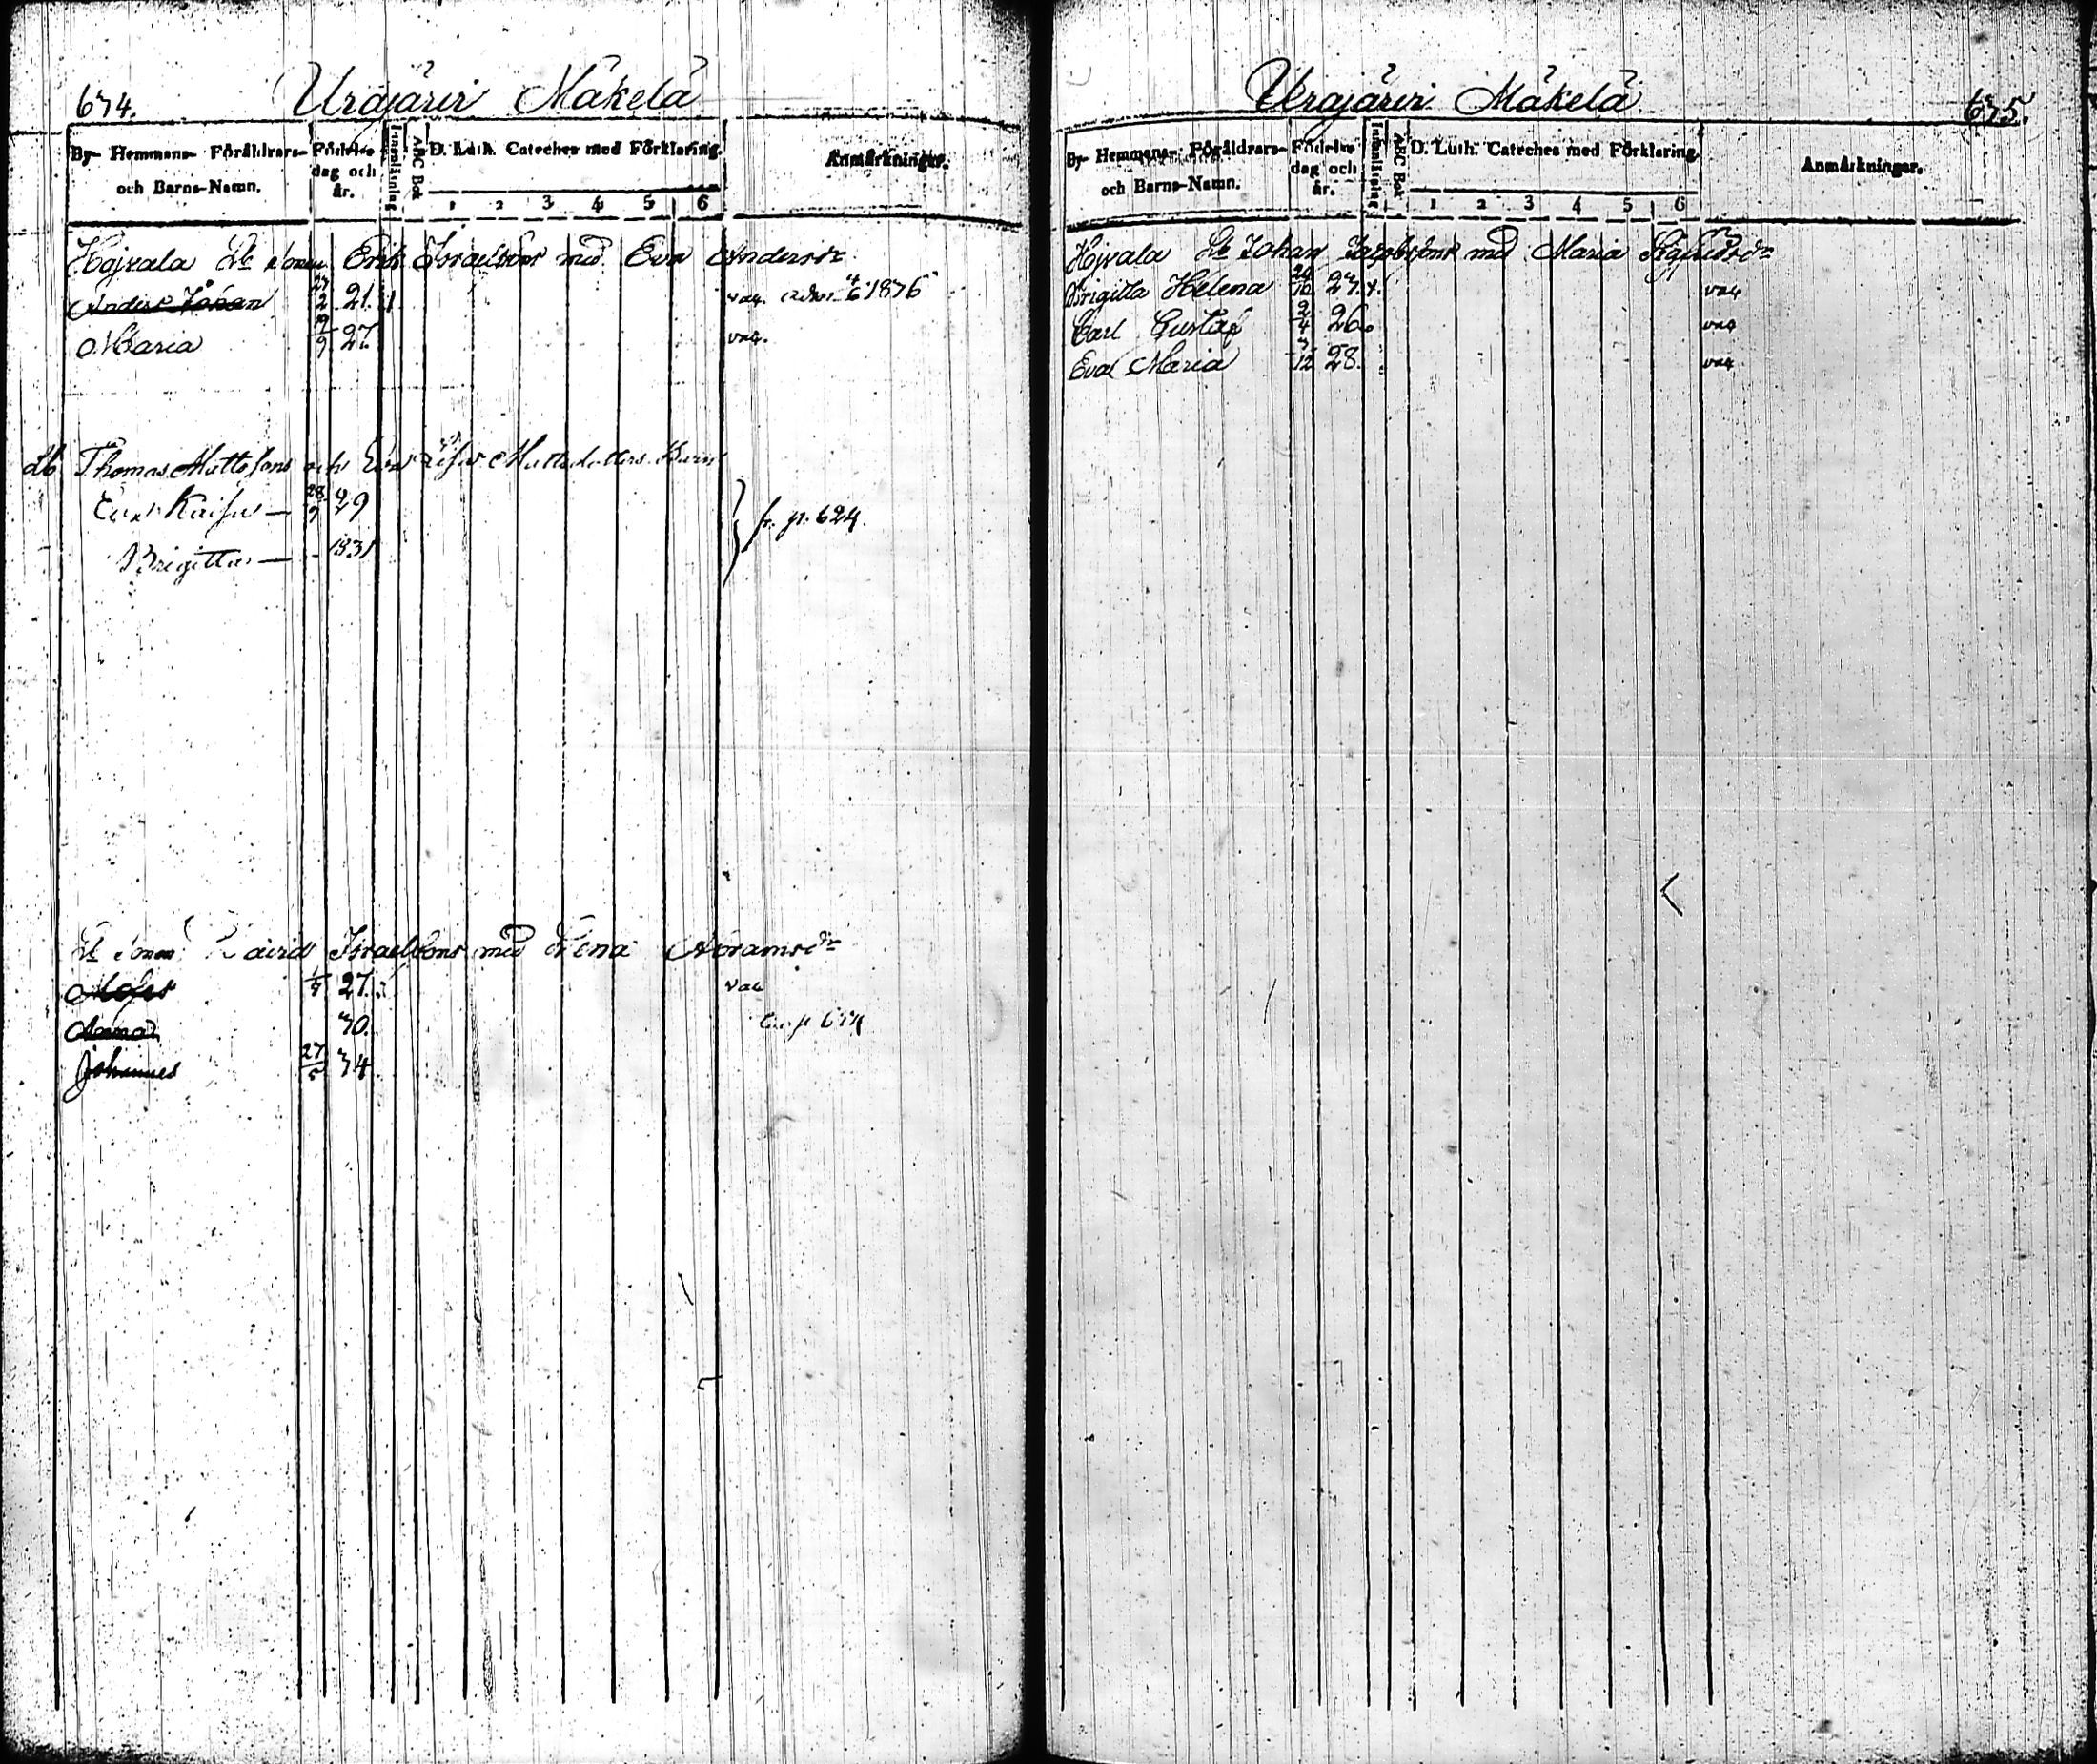 674.
Urajärvi Mäkelä
By- Hemmans- Föräldrars- och Barns-Namn.
Födelse dag och år.
Innanläsning
ABC Bok
D. Luth. Cateches med Förklaring.
1 2 3 4 5 6
Anmärkningar.
Hojvala Erik Israelsons med Eva Andersdr
Anders Johan 27/2 21. vac. 4/6 1836
Maria 19/9 27. vac.
Thomas Mattssons och Eva Mattsdotters Barn
Eva Kaisa — 28/9 29
Brigitta — 1831
fr. p. 624.
David Israelsons med Lena Abramsdr
Moses 27. vac
Anna 30.
Johannes 27/5 34
Urajärvi Mäkelä
675.
By- Hemmans- Föräldrars- och Barns-Namn.
Födelse dag och år.
Innanläsning
ABC Bok
D. Luth. Cateches med Förklaring.
1 2 3 4 5 6
Anmärkningar.
Hojvala Johan Jacobsons med Maria
Brigitta Helena 24/10 23. vac
Carl Gustaf 2/4 26. vac
Eva Maria 28. vac